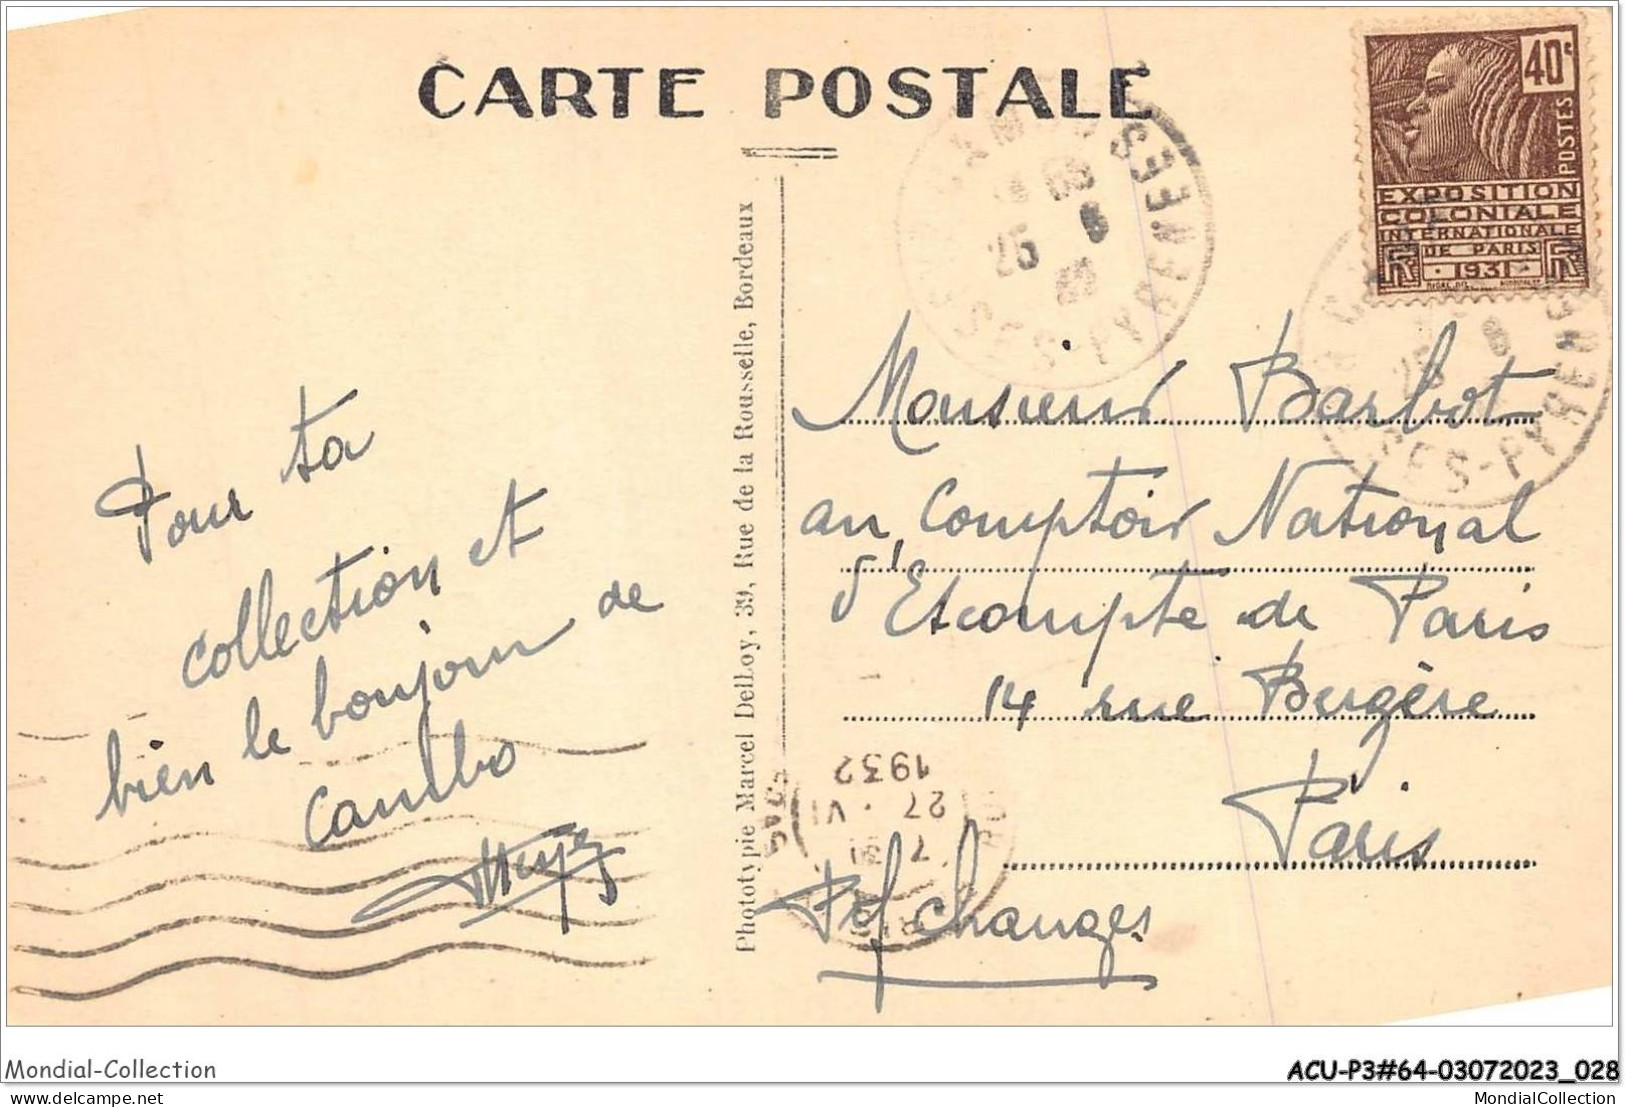 CARTE POSTALE
40c
POSTES
EXPOSITION
COLONIALE
INTERNATIONALE
DE PARIS
1931
Pour ta
collection et
bien le bonjour de
Cambo
Phototypie Marcel Delboy, 39, Rue de la Rousselle, Bordeaux
Monsieur Barbot
au Comptoir National
d'Escompte de Paris
14 rue Bergère
Paris
Pef Changes
SES-PYRENEES
25
SES-PYRENE
25
7
27 · VI
1932
Mondial-Collection
ACU-P3#64-03072023_028
delcampe.net
MondialCollection